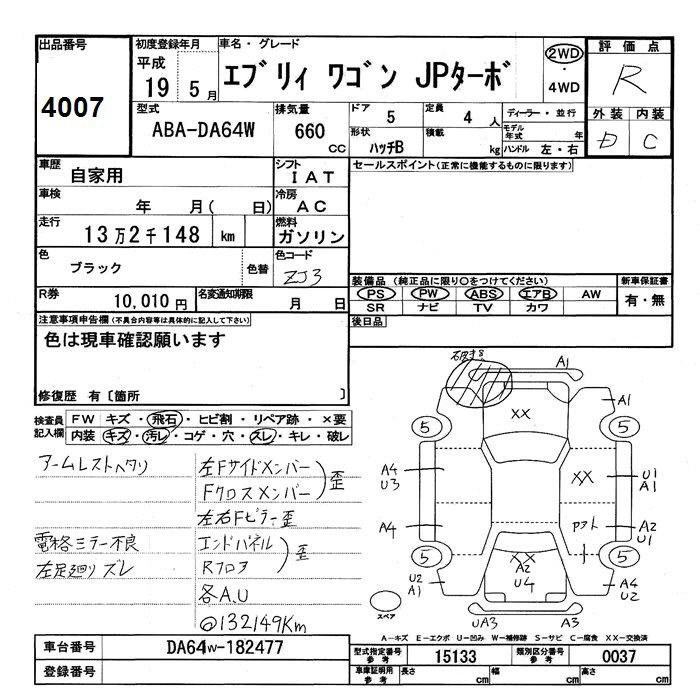 出品番号
4007
初度登録年月
平成
19 5 月
車名・グレード
エブリィ ワゴン JPターボ
2WD
・
4WD
評価点
R
型式
ABA-DA64W
排気量
660 cc
ドア 5
定員 4 人
ディーラー・並行
外装 内装
C
形状 ハッチB
積載 kg
モデル年式 年
ハンドル 左・右
車歴 自家用
シフト IAT
セールスポイント(正常に機能するものに限ります)
車検 年 月( 日)
冷房 AC
走行 13万2千148 km
燃料 ガソリン
色 ブラック 色替
色コード ZJ3
装備品 (純正品に限り○をつけてください)
新車保証書
PS PW ABS エアB AW
有・無
SR ナビ TV カワ
R券 10,010円
名変通知期限 月 日
後日品
注意事項申告欄(不具合内容等は具体的に記入して下さい)
色は現車確認願います
修復歴 有〔箇所 〕
検査員記入欄
FW キズ・飛石・ヒビ割・リペア跡・×要
内装 キズ・汚レ・コゲ・穴・スレ・キレ・破レ
アームレストヘタリ
左Fサイドメンバー
Fクロスメンバー
歪
左右Fピラー歪
電格ミラー不良
エンドパネル
左足廻リズレ
Rフロア
歪
各A.U
@132149Km
A1
XX
A1
5
5
A4
U3
XX
U1
A1
A4
A2
U1
5
5
U2
A1
XX
A2
U4
A4
U2
スペア
UA3
A3
A-キズ E-エクボ U-凹み W-補修跡 S-サビ C-腐食 XX-交換済
車台番号 DA64W-182477
型式指定番号 参考 15133
類別区分番号 参考 0037
登録番号
車庫証明用 参考
長さ cm
幅 cm
高さ cm